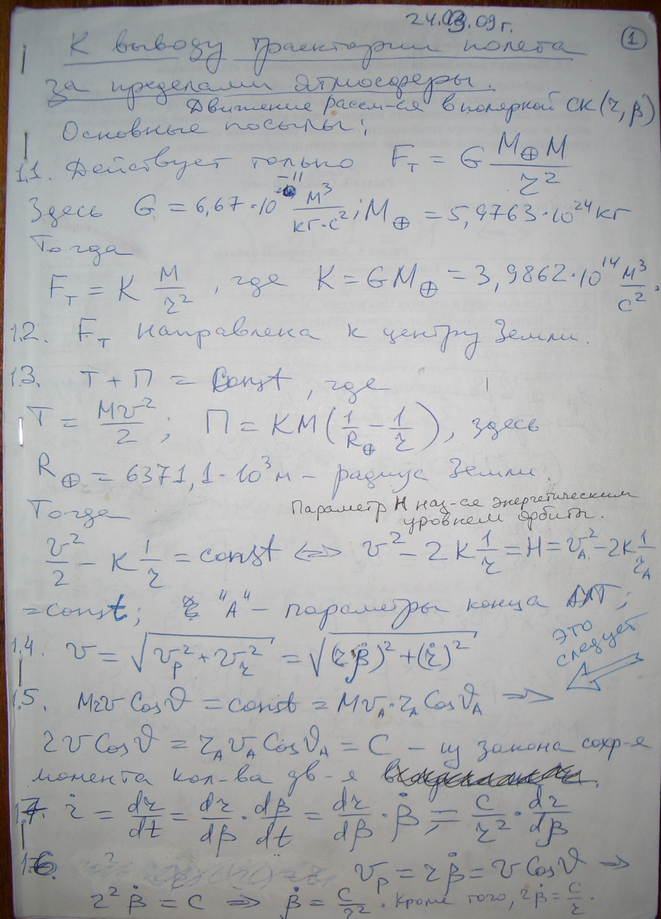 24.03.09г.
1
К выводу траектории полета
за пределами атмосферы.
Движение рассм-ся в полярной СК (r, β)
Основные посылы:
1.1. Действует только F_T = G M⊕M / r²
Здесь G = 6,67·10⁻¹¹ м³/кг·с²; M⊕ = 5,9763·10²⁴ кг
Тогда
F_T = K M/r², где K = GM⊕ = 3,9862·10¹⁴ м³/с².
1.2. F_T направлена к центру Земли.
1.3. T + П = Const, где
T = Mv²/2; П = KM(1/R⊕ − 1/r), здесь
R⊕ = 6371,1·10³ м – радиус Земли.
Параметр H наз-ся энергетическим
уровнем орбиты.
Тогда
v²/2 − K 1/r = const ⟺ v² − 2K 1/r = H = v_A² − 2K 1/r_A
= const; "A" – параметры конца АУТ;
1.4. v = √(v_β² + v_r²) = √((rβ̇)² + (ṙ)²)
это
следует
1.5. Mrv Cosϑ = const = Mv_A·r_A Cosϑ_A ⟹
rv Cosϑ = r_A v_A Cosϑ_A = C – из закона сохр-я
момента кол-ва дв-я
1.7. ṙ = dr/dt = dr/dβ · dβ/dt = dr/dβ · β̇ = C/r² · dr/dβ
1.6. v_β = rβ̇ = v Cosϑ ⟹
r²β̇ = C ⟹ β̇ = C/r². Кроме того, rβ̇ = C/r.